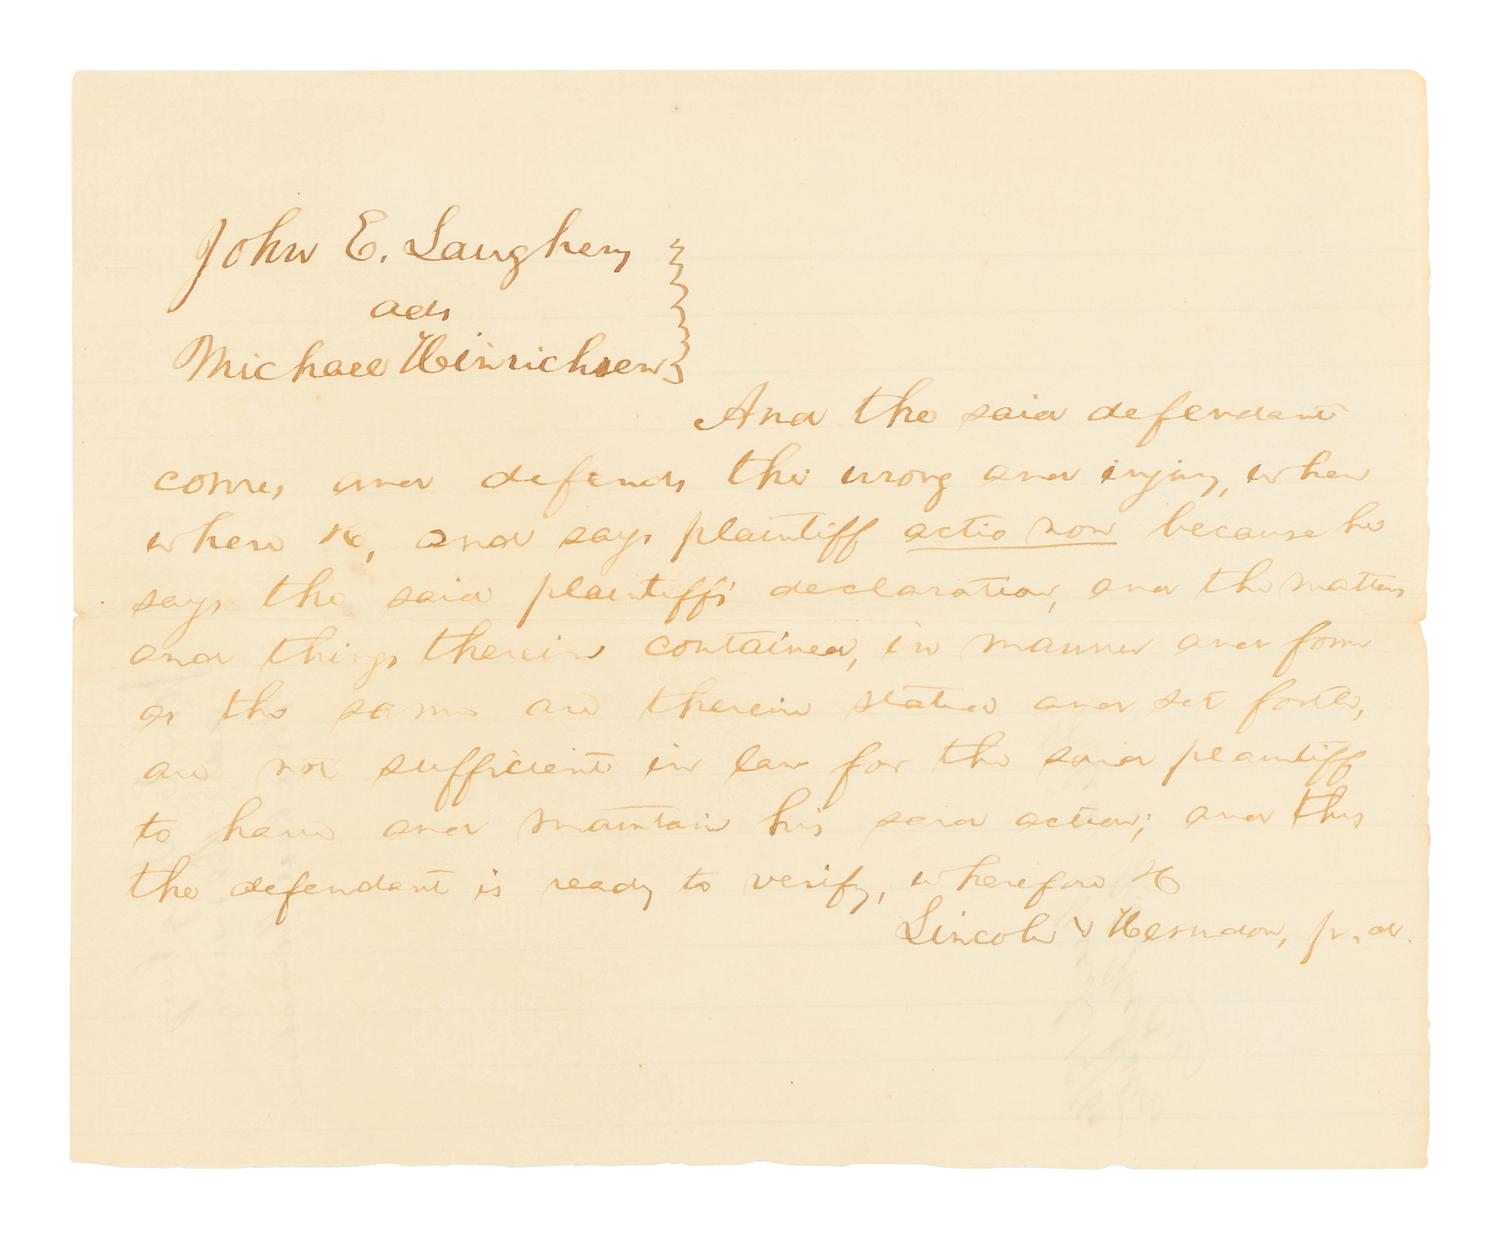 John E. Laughery
ads
Michael Hinrichsen
And the said defendant
comes and defends the wrong and injury, when
where &c, and says plaintiff actio non because he
says the said plaintiff's declaration, and the matters
and things therein contained, in manner and form
as the same are therein stated and set forth,
are not sufficient in law for the said plaintiff
to have and maintain his said action; and this
the defendant is ready to verify, wherefore &c
Lincoln & Herndon, p. d.